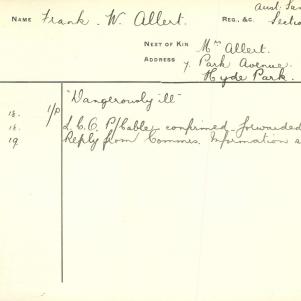 NAME Frank W. Allert. REG., &C. Aust. San
Sectio
NEXT OF KIN Mrs Allert.
ADDRESS 7. Park Avenue.
Hyde Park.
"Dangerously ill"
18. 1/P
18. L.C.O. P/Cable confirmed forwarded
19 Reply from Commis. Information a